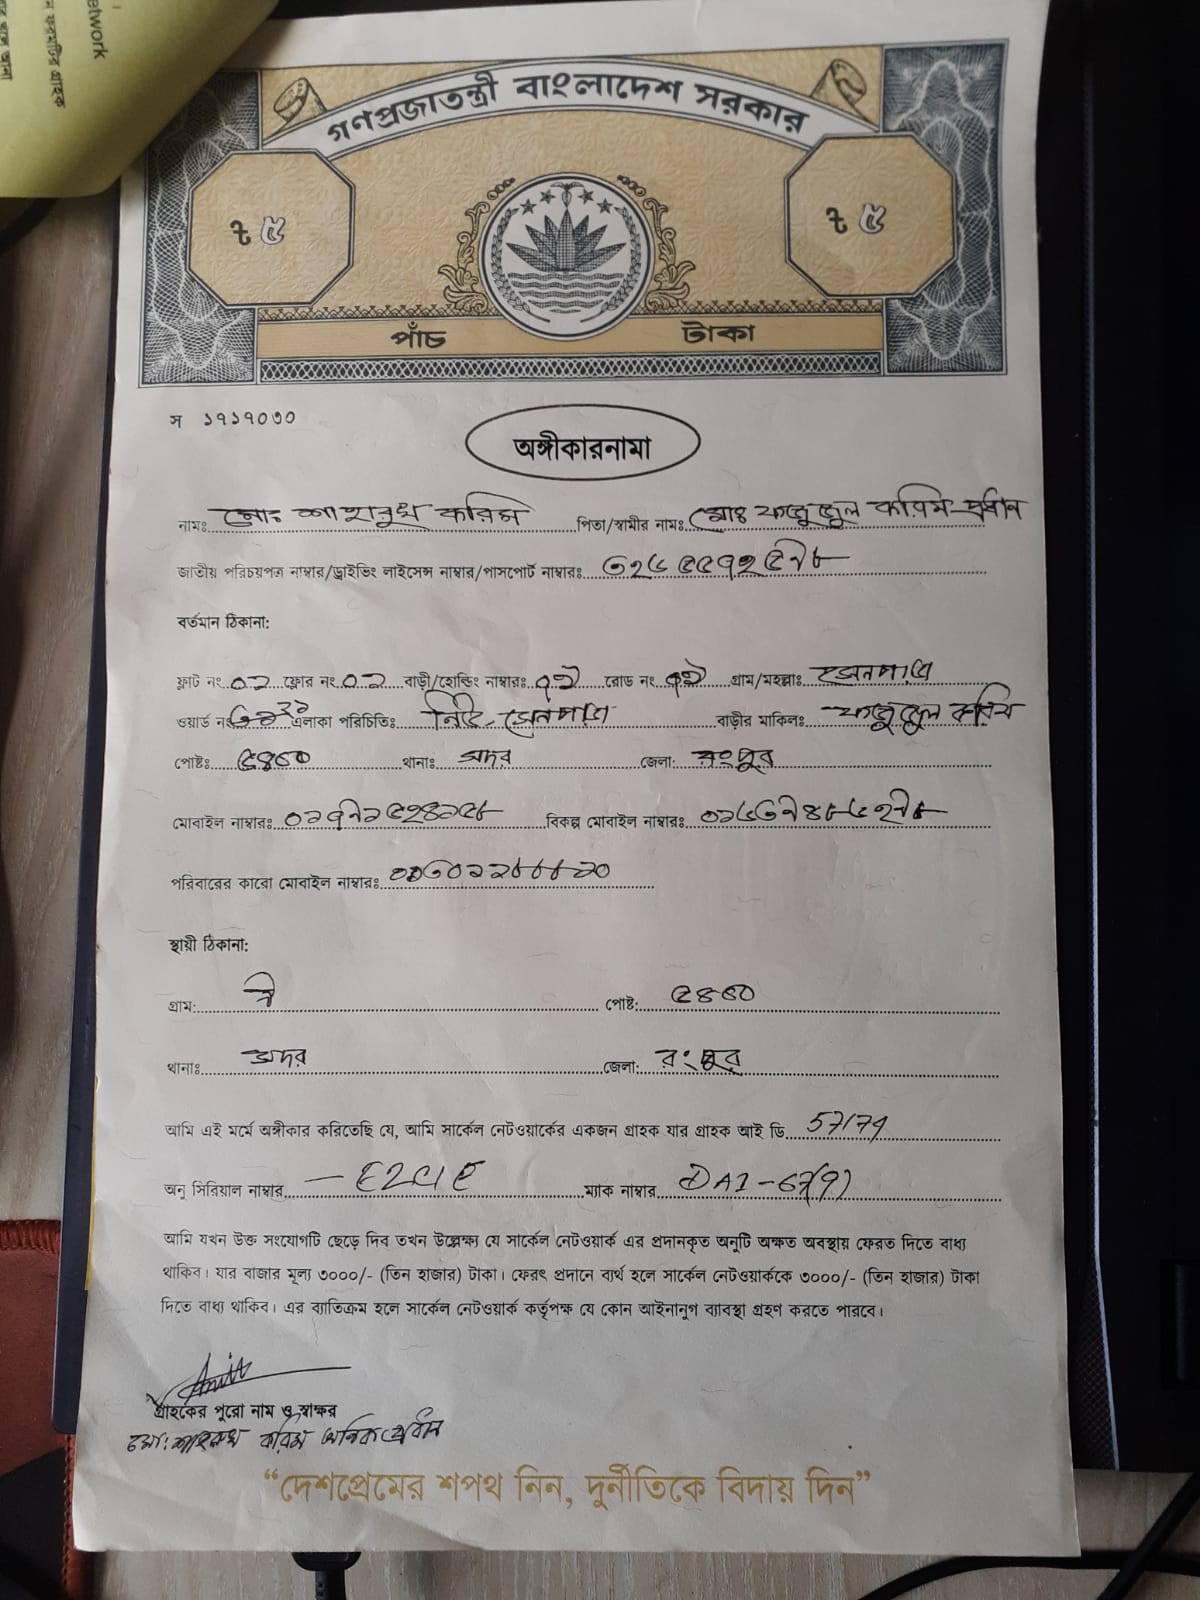 etwork
গণপ্রজাতন্ত্রী বাংলাদেশ সরকার
৳ ৫ ৳ ৫
পাঁচ টাকা
স ১৭১৭০৩০
অঙ্গীকারনামা
নামঃ মোঃ শাহরুখ করিম পিতা/স্বামীর নামঃ মোঃ ফজলুল করিম প্রধান
জাতীয় পরিচয়পত্র নাম্বার/ড্রাইভিং লাইসেন্স নাম্বার/পাসপোর্ট নাম্বারঃ
বর্তমান ঠিকানা:
ফ্লাট নং ০১ ফ্লোর নং ০১ বাড়ী/হোল্ডিং নাম্বারঃ রোড নং গ্রাম/মহল্লাঃ সেনপাড়া
ওয়ার্ড নং এলাকা পরিচিতিঃ সেনপাড়া বাড়ীর মালিকঃ ফজলুল করিম
পোষ্টঃ ৫৪০০ থানাঃ সদর জেলা: রংপুর
মোবাইল নাম্বারঃ বিকল্প মোবাইল নাম্বারঃ
পরিবারের কারো মোবাইল নাম্বারঃ
স্থায়ী ঠিকানা:
গ্রাম: ঐ পোষ্ট: ৫৪০০
থানাঃ সদর জেলা: রংপুর
আমি এই মর্মে অঙ্গীকার করিতেছি যে, আমি সার্কেল নেটওয়ার্কের একজন গ্রাহক যার গ্রাহক আই ডি
অনু সিরিয়াল নাম্বার ম্যাক নাম্বার
আমি যখন উক্ত সংযোগটি ছেড়ে দিব তখন উল্লেক্ষ্য যে সার্কেল নেটওয়ার্ক এর প্রদানকৃত অনুটি অক্ষত অবস্থায় ফেরত দিতে বাধ্য
থাকিব। যার বাজার মূল্য ৩০০০/- (তিন হাজার) টাকা। ফেরৎ প্রদানে ব্যর্থ হলে সার্কেল নেটওয়ার্ককে ৩০০০/- (তিন হাজার) টাকা
দিতে বাধ্য থাকিব। এর ব্যাতিক্রম হলে সার্কেল নেটওয়ার্ক কর্তৃপক্ষ যে কোন আইনানুগ ব্যাবস্থা গ্রহণ করতে পারবে।
গ্রাহকের পুরো নাম ও স্বাক্ষর
মো: শাহরুখ করিম অনিক প্রধান
“দেশপ্রেমের শপথ নিন, দুর্নীতিকে বিদায় দিন”